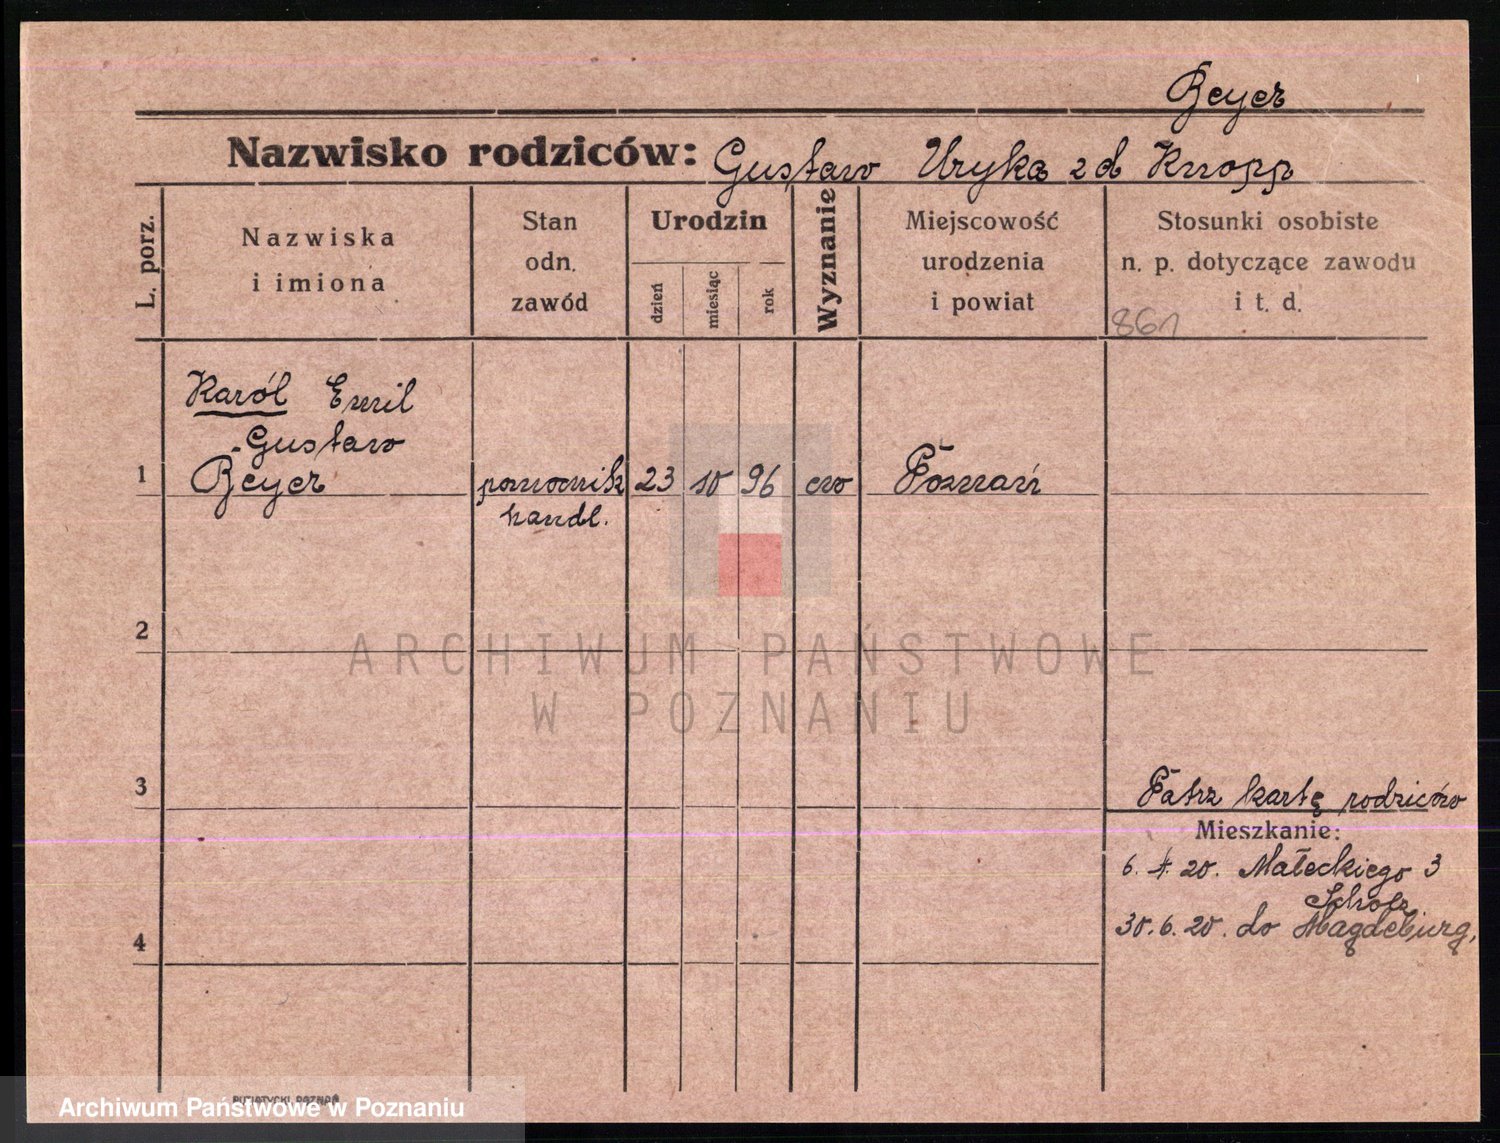 Beyer
Nazwisko rodziców: Gustaw Uryka z d Knopp
L. porz.
Nazwiska
i imiona
Stan
odn.
zawód
Urodzin
dzień
miesiąc
rok
Wyznanie
Miejscowość
urodzenia
i powiat
Stosunki osobiste
n. p. dotyczące zawodu
i t. d.
861
Karól Emil
Gustaw
1 Beyer pomocnik 23 10 96 ew Poznań
handl.
2
ARCHIWUM PAŃSTWOWE
W POZNANIU
3 Patrz kartę rodziców
Mieszkanie:
6. 4. 20. Małeckiego 3
Scholz
4 30. 6. 20. do Magdeburg.
PUTIATYCKI, POZNAŃ
Archiwum Państwowe w Poznaniu